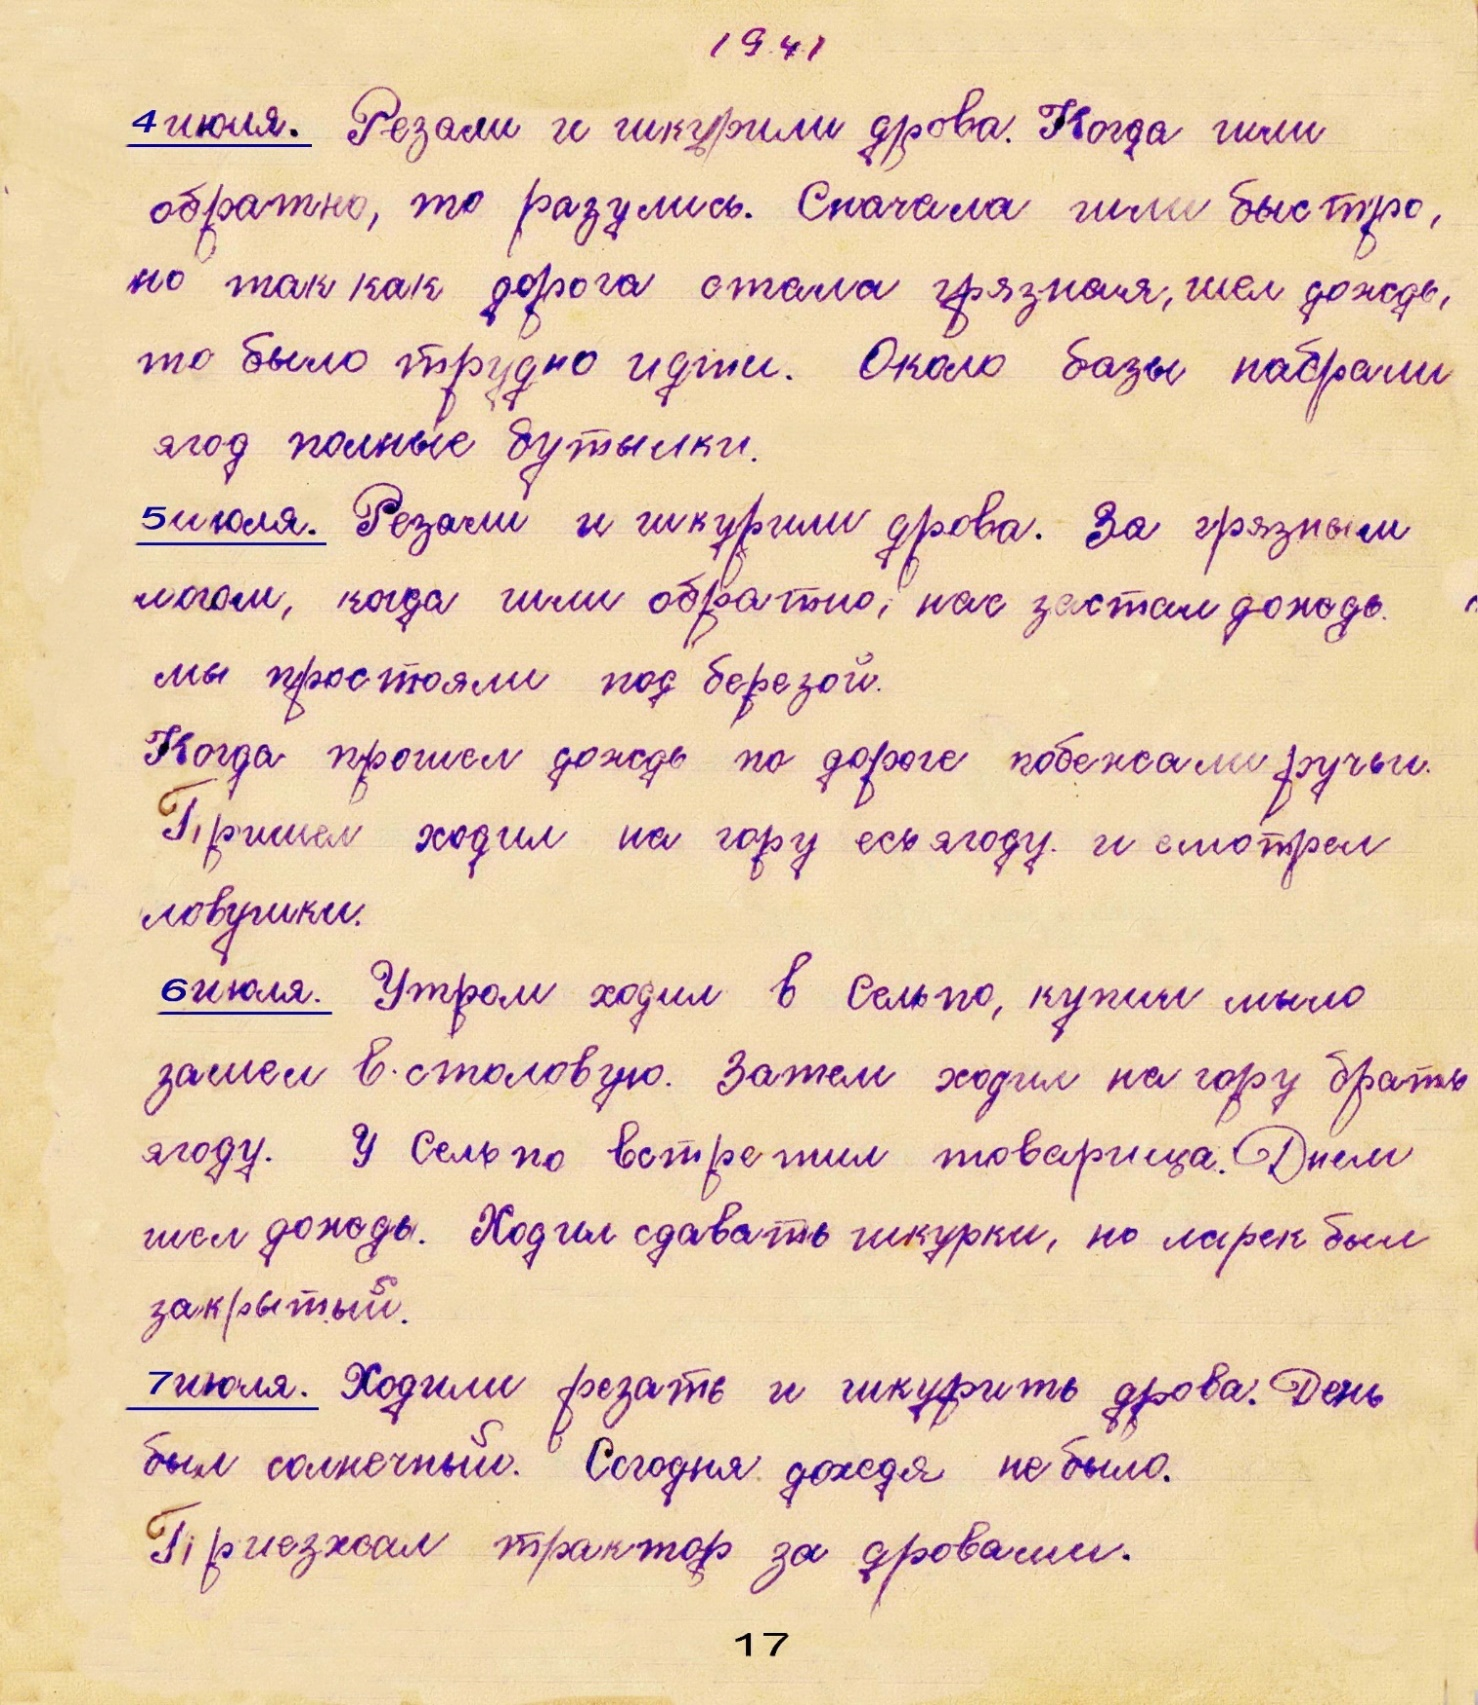 1941
4 июля. Резали и шкурили дрова. Когда шли
обратно, то разулись. Сначала шли быстро,
но так как дорога стала грязная, шел дождь,
то было трудно идти. Около базы набрали
ягод полные бутылки.
5 июля. Резали и шкурили дрова. За грязным
логом, когда шли обратно, нас застал дождь.
мы простояли под березой.
Когда прошел дождь по дороге побежали ручьи.
Пришел ходил на гору есь ягоду. и смотрел
ловушки.
6 июля. Утром ходил в Сельпо, купил мыло
зашел в столовую. Затем ходил на гору брать
ягоду. У Сельпо встретил товарища. Днем
шел дождь. Ходил сдавать шкурки, но ларек был
закрытый.
7 июля. Ходили резать и шкурить дрова. День
был солнечный. Согодня дождя не было.
Приезжал трактор за дровами.
17